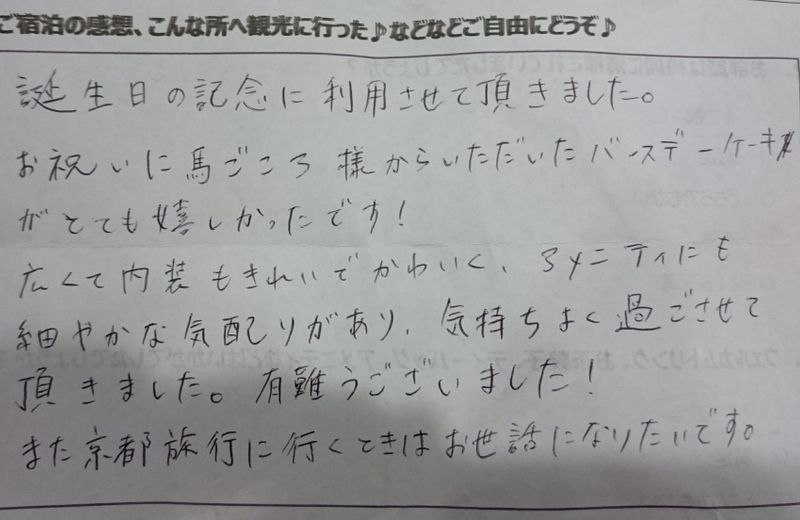 ご宿泊の感想、こんな所へ観光に行った♪などなどご自由にどうぞ♪
誕生日の記念に利用させて頂きました。
お祝いに馬ごころ様からいただいたバースデーケーキ
がとても嬉しかったです！
広くて内装もきれいでかわいく、アメニティにも
細やかな気配りがあり、気持ちよく過ごさせて
頂きました。有難うございました！
また京都旅行に行くときはお世話になりたいです。